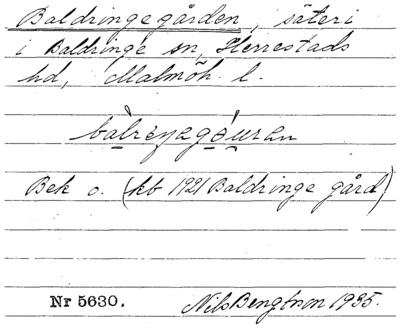 Baldringegården, säteri
i Baldringe sn, Herrestads
hd, Malmöh. l.
Bek o. (kb 1921 Baldringe gård)
Nr 5630. Nils Bengtson 1935.